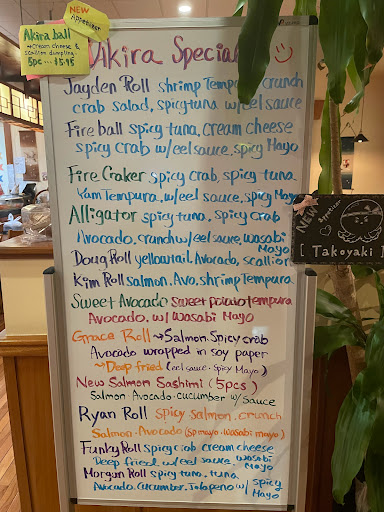 NEW
Appetizer
Akira ball
→cream cheese &
scallion dumpling.
5pcs...$5.95
Akira Special
Jayden Roll shrimp Tempura crunch
crab salad, spicy tuna w/eel sauce
Fire ball spicy tuna. cream cheese
spicy crab w/eel sauce. spicy Mayo
Fire Craker spicy crab, spicy tuna
Yam Tempura. w/eel sauce. spicy Mayo
Alligator spicy tuna. spicy crab
Avocado. crunch w/eel sauce, wasabi
Mayo
Doug Roll yellowtail. Avocado, scallion
Kim Roll salmon. Avo. shrimp Tempura
Sweet Avocado sweet potato tempura
Avocado. w/ wasabi Mayo
Grace Roll → Salmon. Spicy crab
Avocado wrapped in soy paper
~Deep fried (eel sauce. Spicy Mayo)
New Salmon Sashimi (5pcs)
Salmon. Avocado. cucumber w/ sauce
Ryan Roll spicy salmon. crunch
Salmon. Avocado (sp mayo. wasabi mayo)
Funky Roll spicy crab cream cheese
Deep fried. w/eel sauce. wasabi
Mayo
Morgun Roll spicy tuna. tuna
Avocado. cucumber. Jalapeno w/ spicy
Mayo
NEW
Appetizer
[ Takoyaki ]